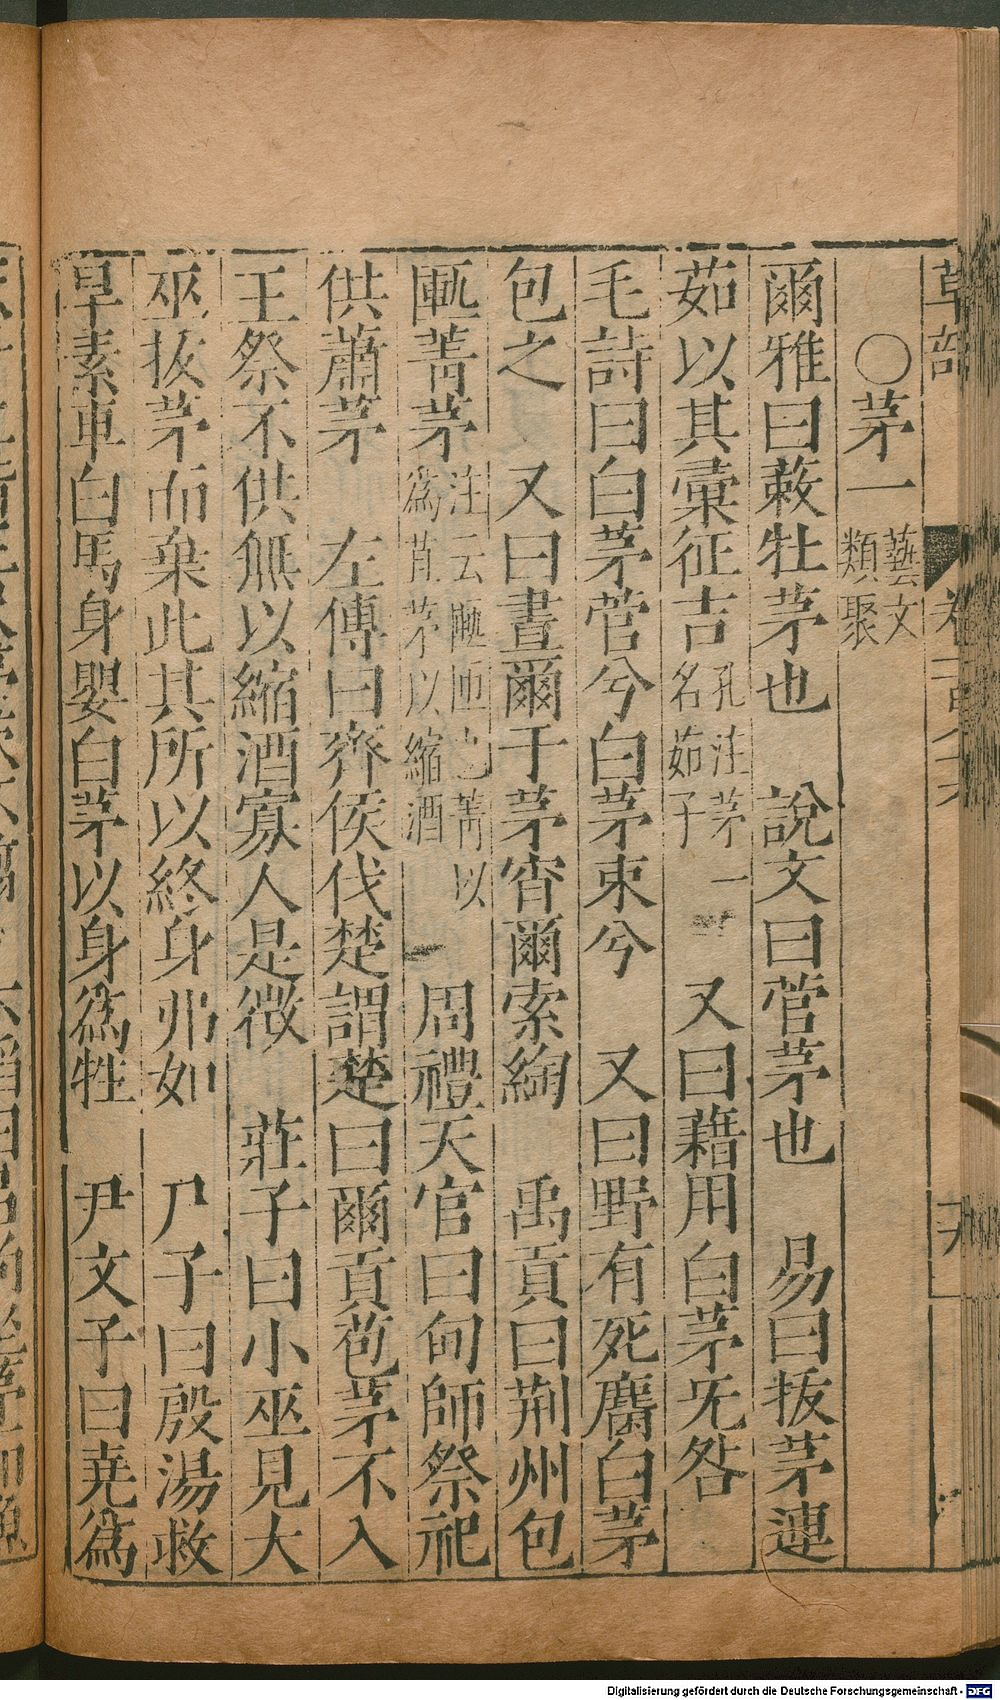 草部
〇茅一 藝文類聚
爾雅曰蔌牡茅也　說文曰菅茅也　易曰拔茅連
茹以其彙征吉 孔注茅一名茹子　又曰藉用白茅旡咎
毛詩曰白茅菅兮白茅束兮　又曰野有死麕白茅
包之　又曰晝爾于茅宵爾索綯　禹貢曰荆州包
匭菁茅 注云匭匣也菁以爲菹茅以縮酒　周禮天官曰甸師祭祀
供蕭茅　左傳曰齊侯伐楚謂楚曰爾貢苞茅不入
王祭不供無以縮酒寡人是徵　莊子曰小巫見大
巫拔茅而棄此其所以終身弗如　尸子曰殷湯救
旱素車白馬身嬰白茅以身爲牲　尹文子曰堯爲
Digitalisierung gefördert durch die Deutsche Forschungsgemeinschaft - DFG